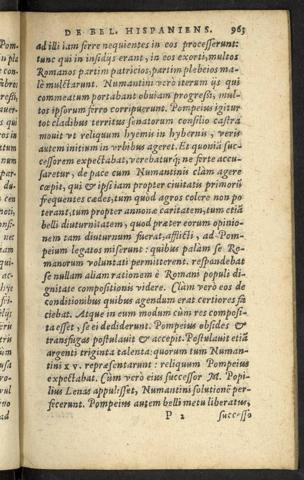 DE BEL. HISPANIENS. 965
ad illi iam ferre nequientes in eos processerunt:
tunc qui in insidijs erant, in eos exorti, multos
Romanos partim patricios, partim plebeios ma-
lè mulctarunt. Numantini verò iterum ijs qui
commeatum portabant obuiam progressi, mul-
tos ipsorum ferro corripuerunt. Pompeius igitur
tot cladibus territus senatorum consilio castra
mouit vt reliquum hyemis in hybernis, veris
autem initium in vrbibus ageret. Et quoniã suc-
cessorem expectabat, verebaturq́; ne forte accu-
saretur, de pace cum Numantinis clàm agere
cœpit, qui & ipsi iam propter ciuitatis primorũ
frequentes cædes, tum quòd agros colere non po
terant, tum propter annonæ caritatem, tum etiã
belli diuturnitatem, quod præter eorum opinio
nem tam diuturnum fuerat, afflicti, ad Pom-
peium legatos miserunt: quibus palàm se Ro-
manorum voluntati permitterent. respondebat
se nullam aliam rationem è Romani populi di-
gnitate compositionis videre. Clàm verò eos de
conditionibus quibus agendum erat certiores fa
ciebat. Atque in eum modum cùm res composi-
ta esset, se ei dediderunt. Pompeius obsides &
transfugas postulauit & accepit. Postulauit etiã
argenti triginta talenta: quorum tum Numan-
tini xv. repræsentarunt: reliquum Pompeius
expectabat. Cùm verò eius successor M. Popi-
lius Lenas appulisset, Numantini solutionẽ per-
fecerunt. Pompeius autem belli metu liberatus,
P 2 successo